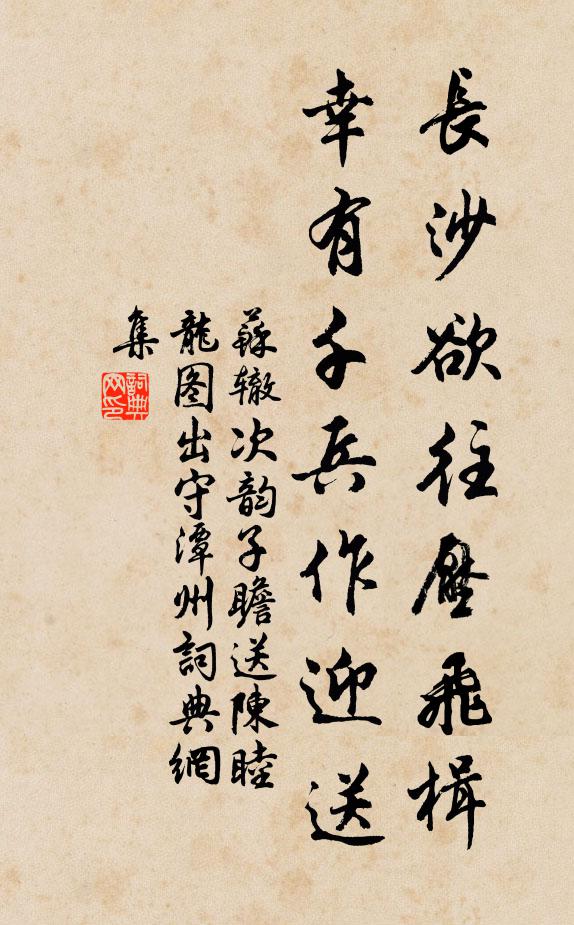 長沙欲往壓飛楫
幸有千兵作迎送
蘇辙次韵子瞻送陳睦
龍图出守潭州詞典網
集
詞典
网印